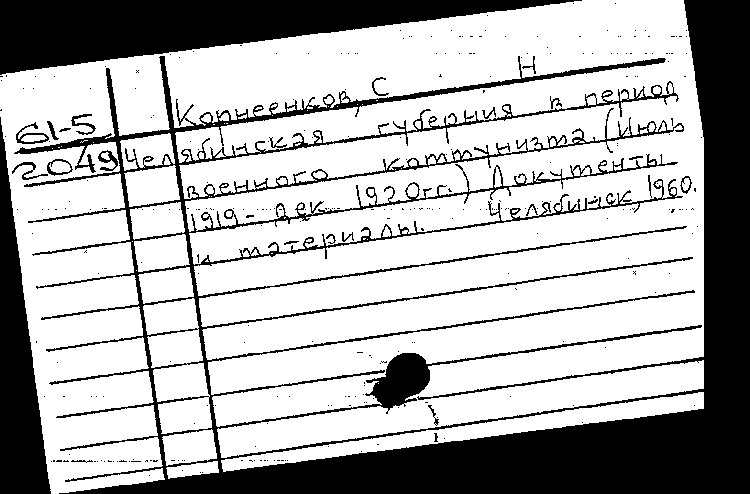 Корнеенков, С Н
61-5
2049 Челябинская губерния в период
военного коммунизма. (Июль
1919 - дек 1920гг.) Документы
и материалы. Челябинск, 1960.